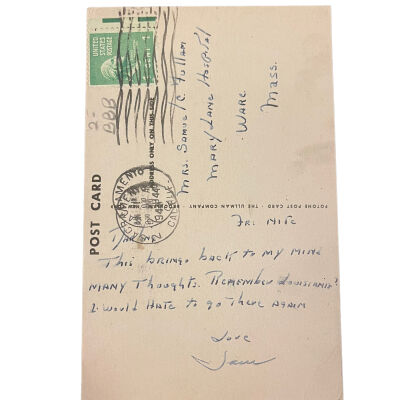 UNITED STATES POSTAGE
1
2-
BBB
POST CARD
ADDRESS ONLY ON THIS SIDE
SACRAMENTO
CALIF.
FOTONE POST CARD · THE ULLMAN COMPANY
Mrs. Samuel C. Fullam
Mary Lane Hospital
Ware
Mass.
Fri Nite
This brings back to my mind
many Thoughts. Remember Louisiana?
I would Hate to go there again
Love
Sam